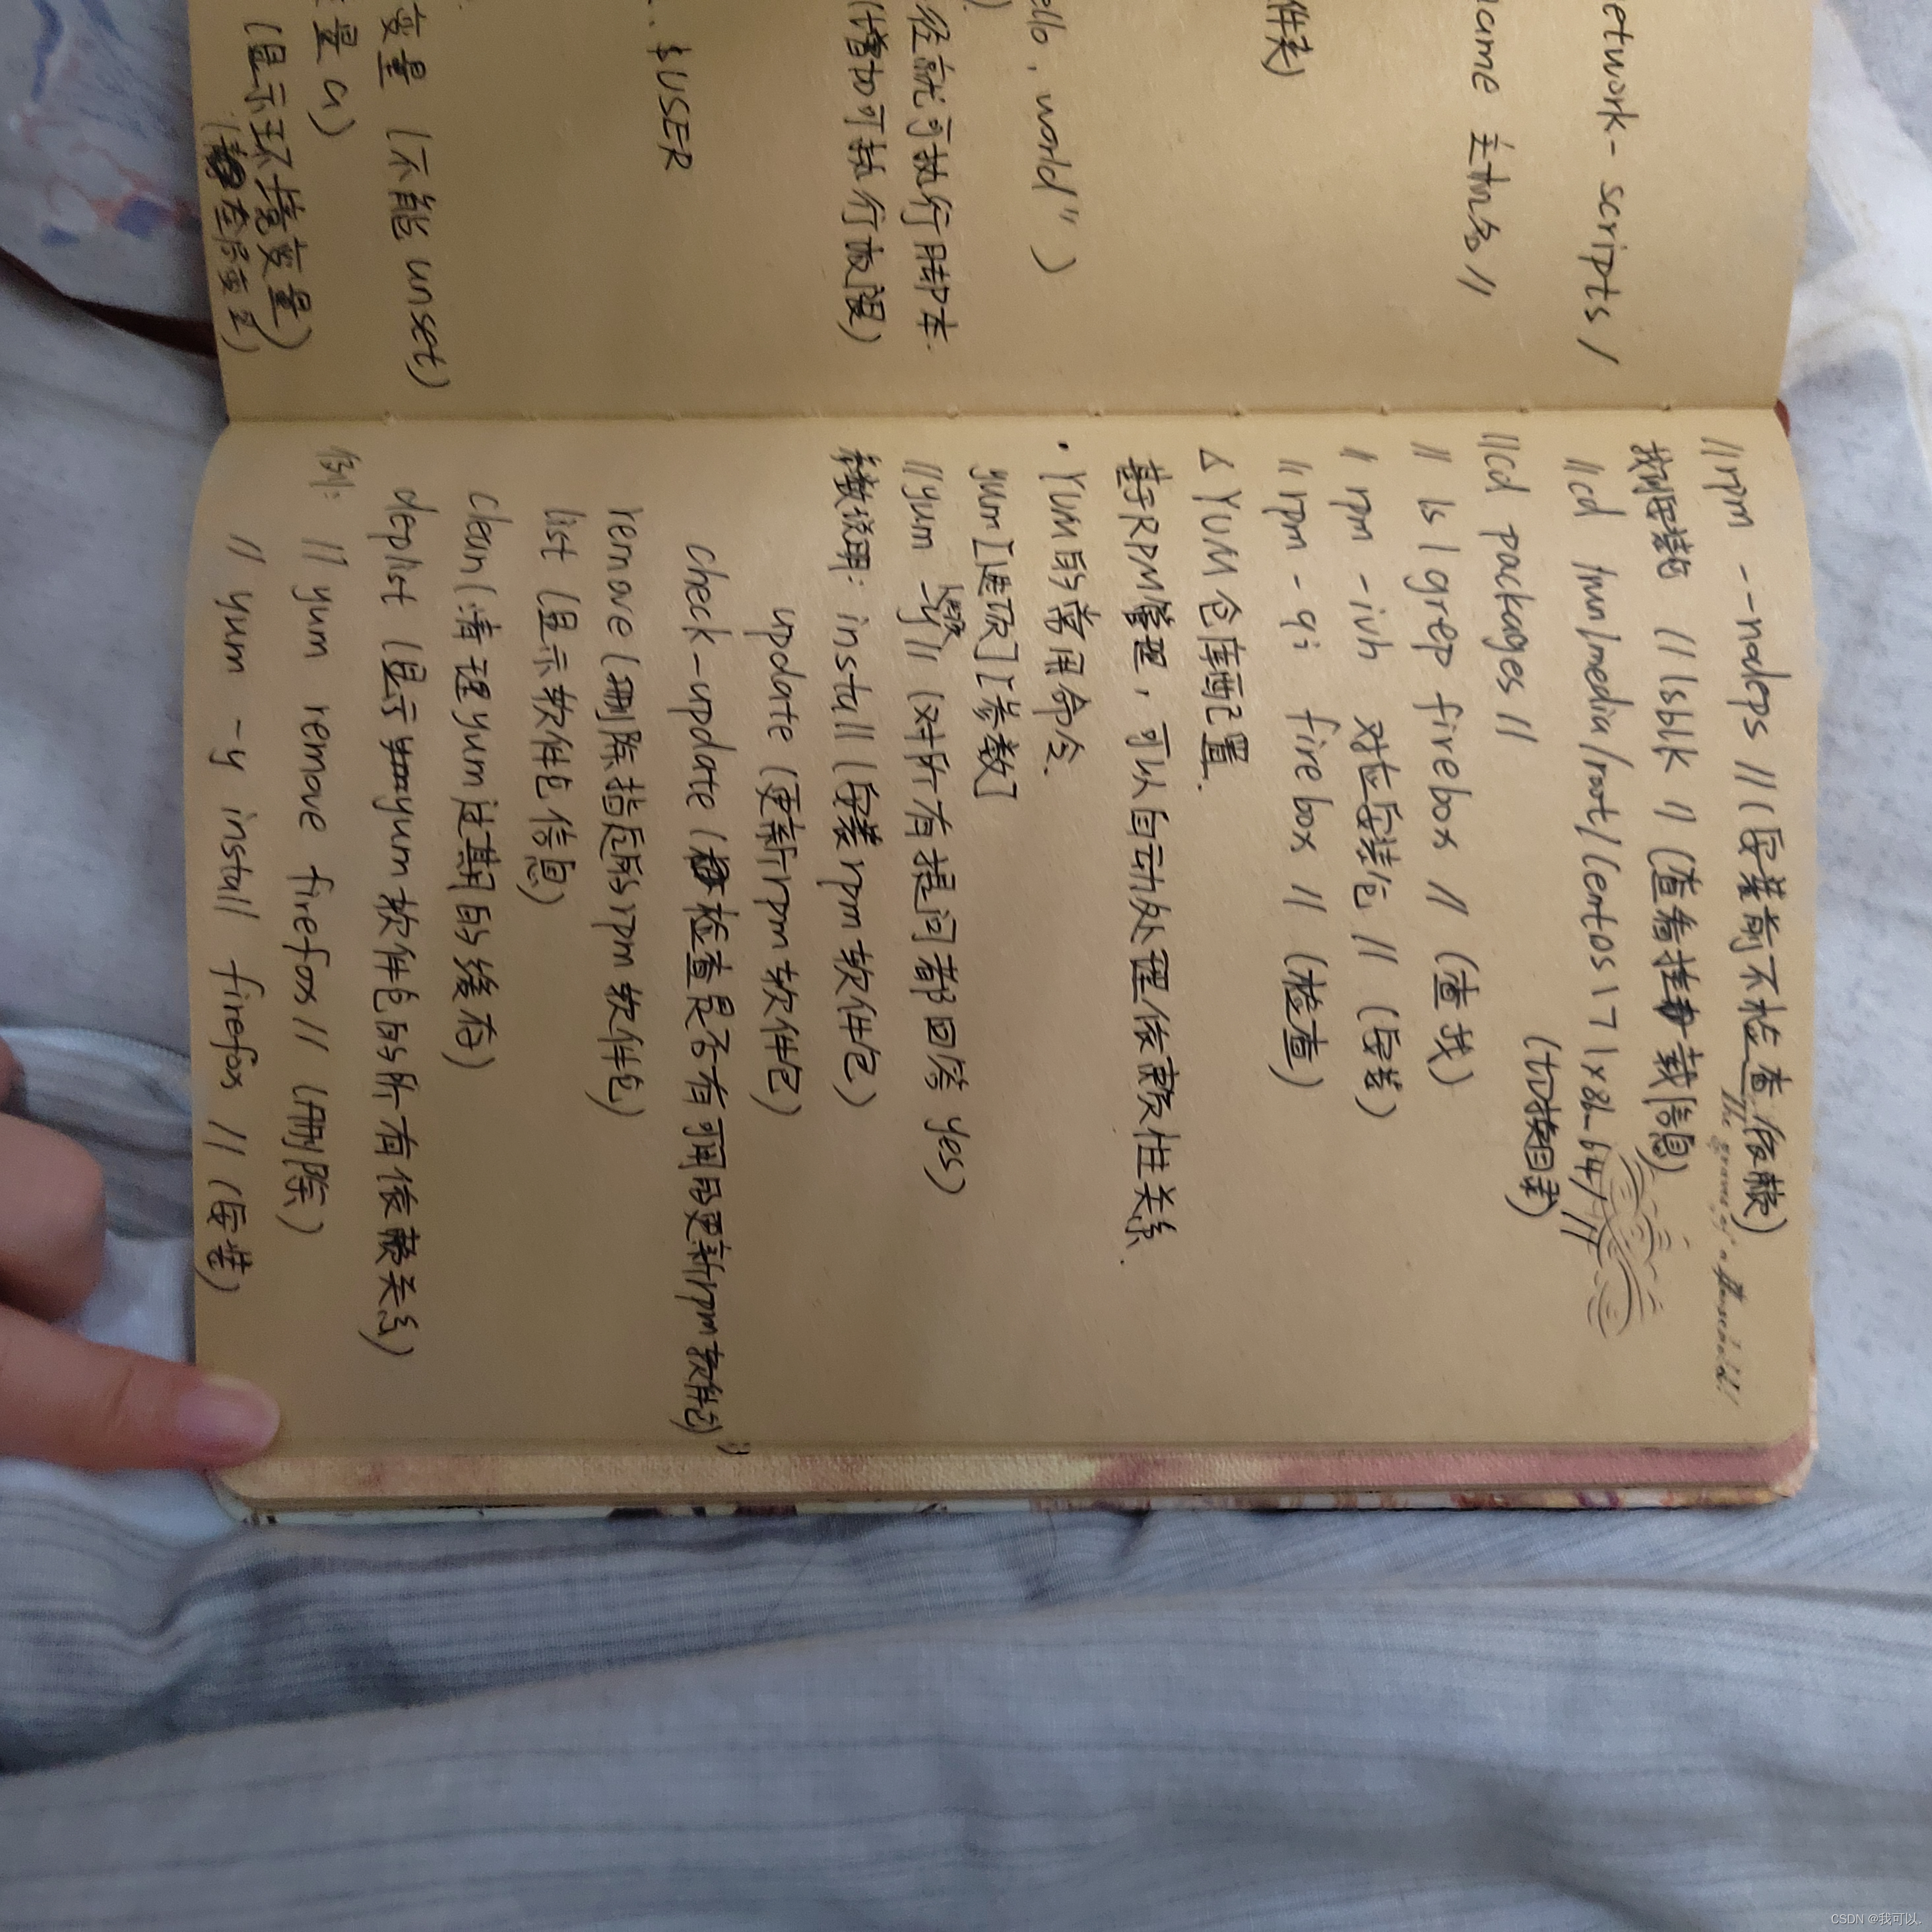 etwork - scripts /
ame 主机名 //
件夹)
ello, world" )
经就可执行脚本.
(增加可执行权限)
.. $USER
变量 (不能 unset)
量 a)
(显示主 变量)
// rpm --nodeps // (安装前不检查依赖)
The graves of a household!
找到安装包 // lsblk // (查看挂载信息)
// cd /run/media/root/CentOS\ 7\ x86_64/ //
(切换目录)
// cd packages //
// ls | grep firebox // (查找)
// rpm -ivh 对应安装包 // (安装)
// rpm -qi firebox // (检查)
△ YUM 仓库配置.
基于RPM管理, 可以自动处理依赖性关系.
· YUM的常用命令.
yum [选项] [参数]
// yum -y // (对所有提问都回答 yes)
选项
参数说明: install (安装rpm软件包)
update (更新rpm软件包)
check-update (检查是否有可用的更新rpm软件包)
remove (删除指定的rpm软件包)
list (显示软件包信息)
clean (清理yum过期的缓存)
deplist (显示yum软件包的所有依赖关系)
例: // yum remove firefox // (删除)
// yum -y install firefox // (安装)
CSDN @我可以